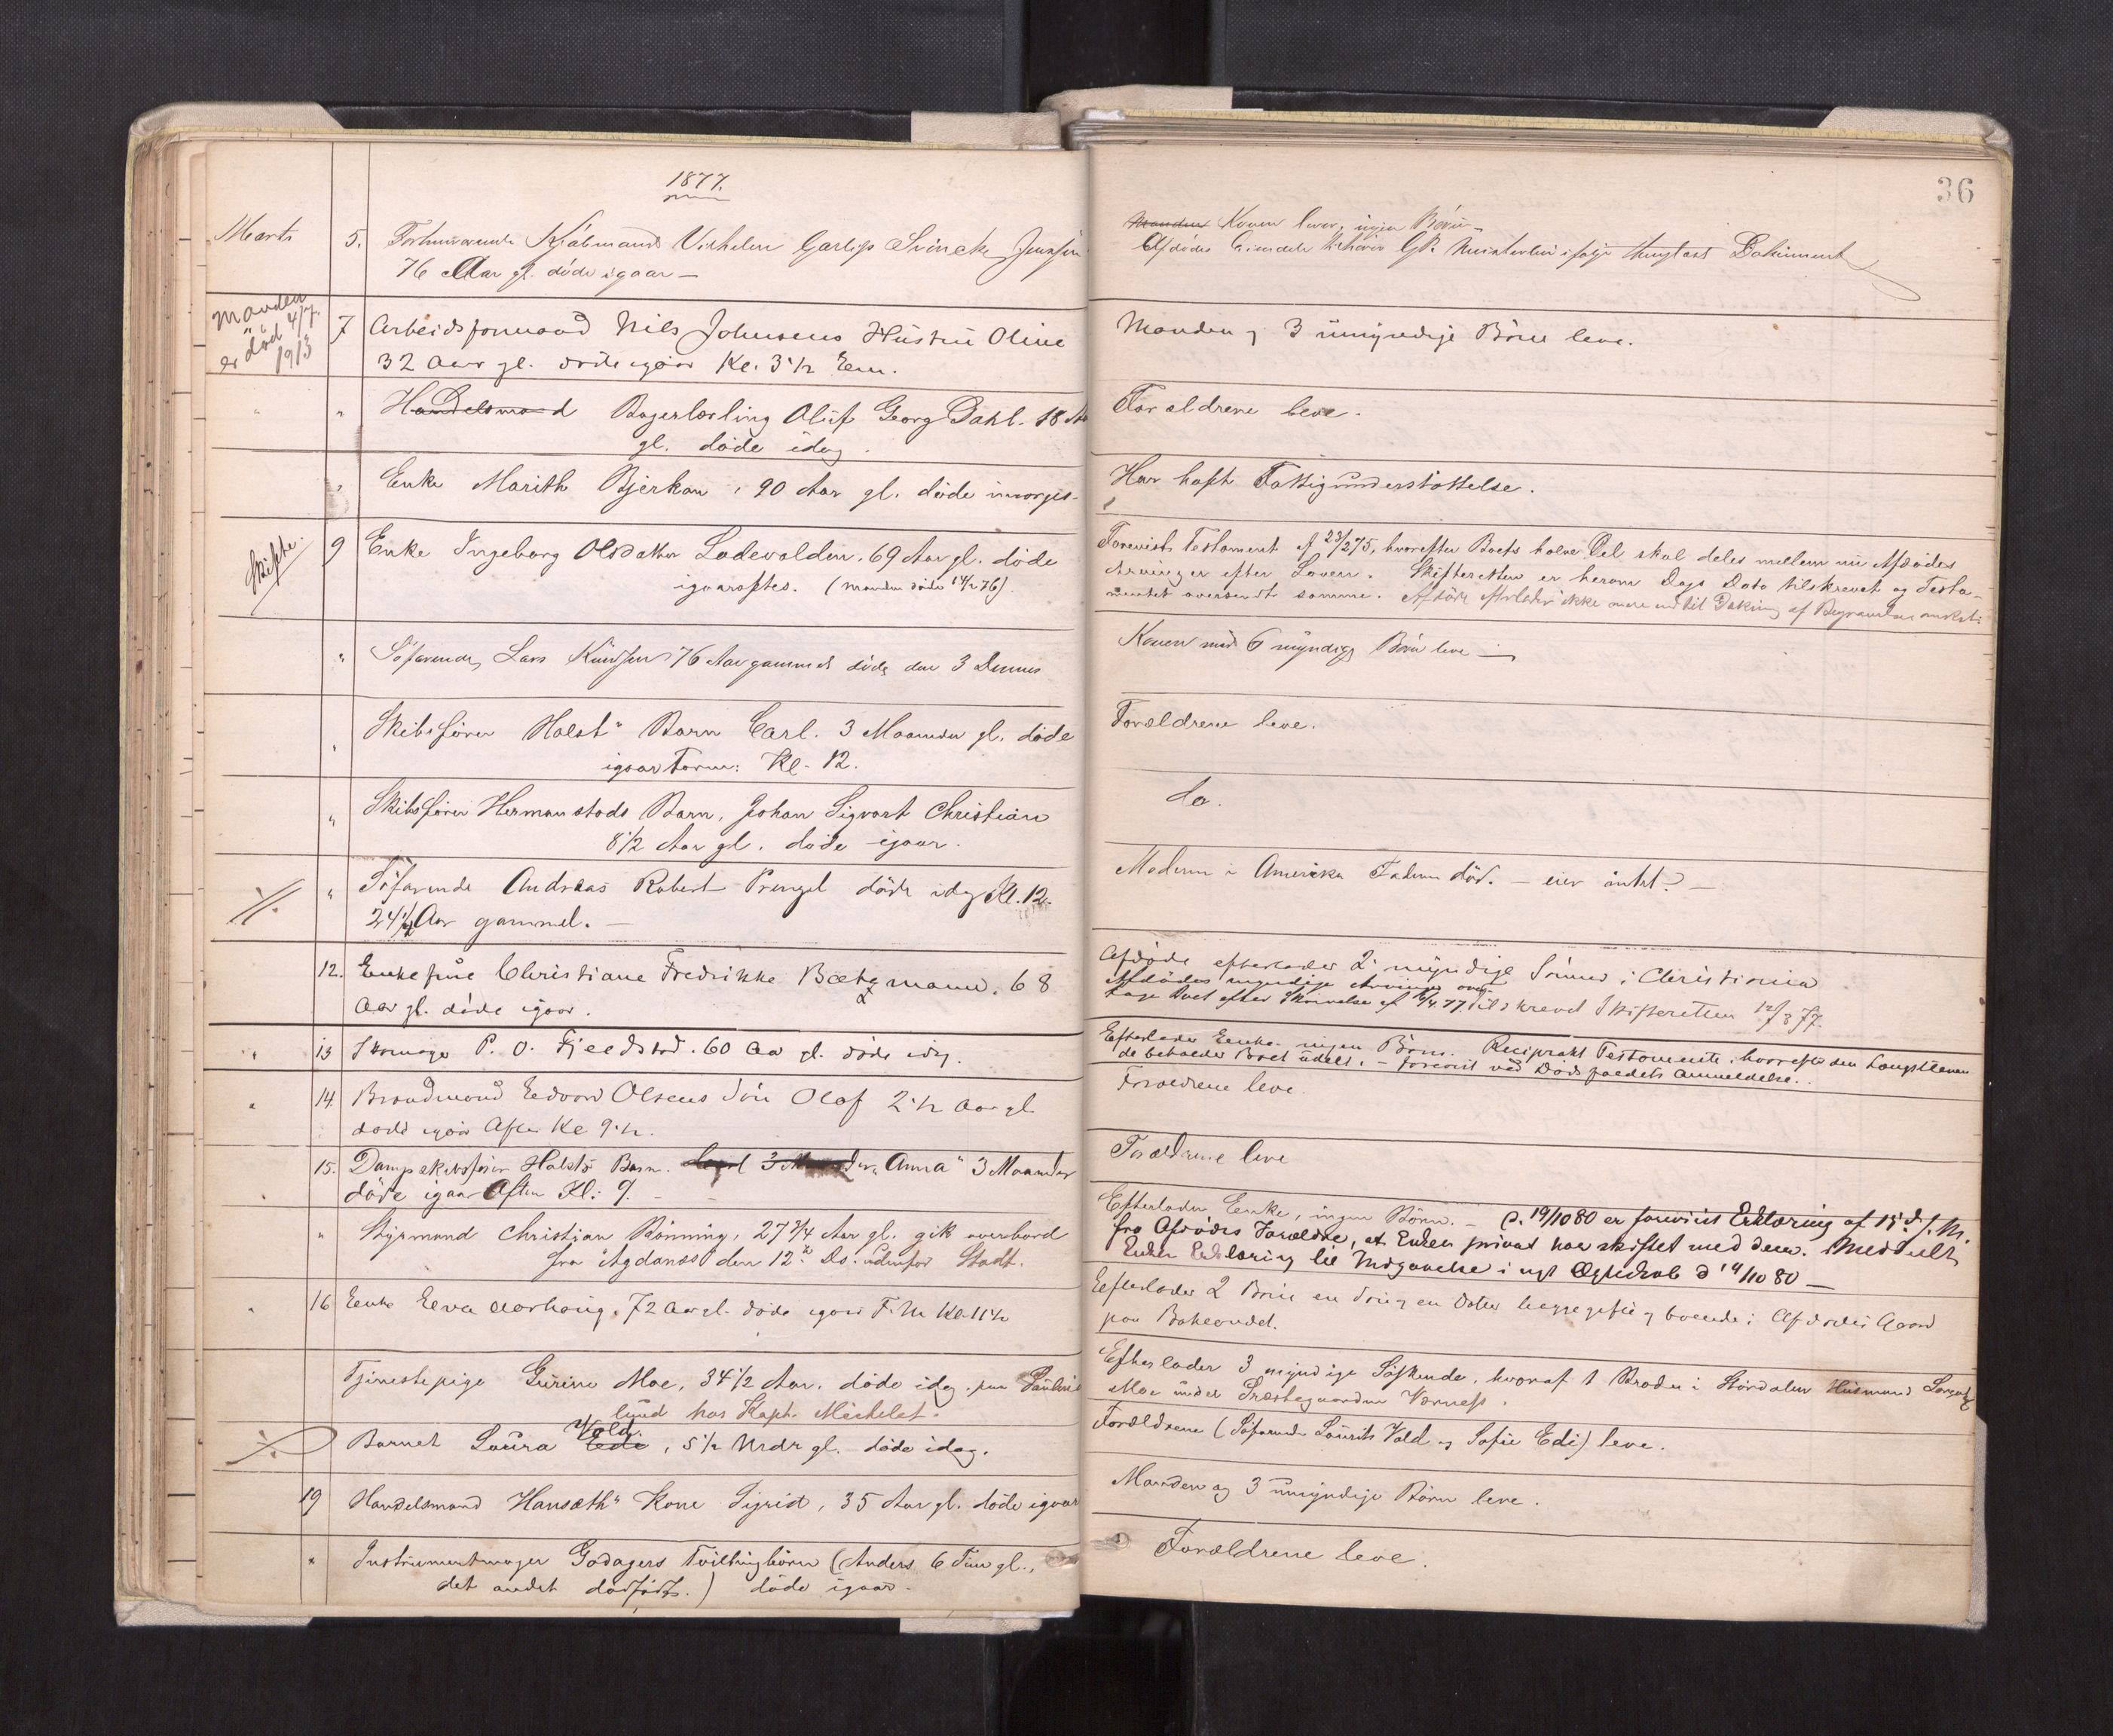 1877.
Marts 5. Forhenværende Kjøbmand Vilhelm Garlip Svincke
76 Aar gl. døde igaar —
Manden
er død 4/7.
1913
7 Arbeidsformand Nils Johnsens Hustru Oline
32 Aar gl. døde igaar Kl. 3½ Em.
" " Handelsmand Bagerlærling Oluf Georg Dahl. 18 Aar
gl. døde idag.
" Enke Marith Bjerkan, 90 Aar gl. døde imorges.
Skifte.
9 Enke Ingeborg Olsdatter Ladevolden. 69 Aar gl. døde
igaaraftes. (Manden døde 14/2 76).
" Søfarende Lars Knudsen 76 Aar gammel døde den 3 Dennes
" Skibsfører Holst" Barn Carl. 3 Maaneder gl. døde
igaar Form: Kl. 12.
" Skibsfører Hermanstads Barn, Johan Sigvart Christian
8½ Aar gl. døde igaar.
" Søfarende Andreas Robert Prengel døde idag Kl. 12.
24½ Aar gammel. —
12. Enkefrue Christiane Fredrikke Bætzmann. 68
Aar gl. døde igaar.
" 13 Skomager P. O. Fjeldstad. 60 Aar gl. døde idag.
" 14. Brandmand Edvard Olsens Søn Olaf 2½ Aar gl.
døde igaar Aften Kl 9½.
" 15. Dampskibsfører Holsts Barn. Carl 3 Maaneder "Anna" 3 Maaneder
døde igaar Aften Kl: 9. —
" Styrmand Christian Rønning, 27¾ Aar gl. gik overbord
fra "Agdanæs" den 12te Ds. udenfor Stadt.
" 16 Enke Eeva Aarhaug. 72 Aar gl. døde igaar F.M Kl. 11½
Tjenestepige Gurine Moe, 34½ Aar. døde idag paa
lund hos Kapt. Michelet.
Barnet Laura Vold. Ede, 5½ Mdr gl. døde idag.
19 Handelsmand Hansæth" Kone Sigrid, 35 Aar gl. døde igaar
" Instrumentmager Godagers Tvillingbørn (Anders 6 Tim gl.,
det andet dødfødt.) døde igaar.
36
Manden Konen lever, ingen Børn —
Dokument
Manden og 3 umyndige Børn leve.
Forældrene leve.
Har haft Fattigunderstøttelse.
Forevist Testament af 23/2 75, hvorefter Boets halve Del skal deles mellem nu Afdødes
Arvinger efter Loven. Skifteretten er herom Dags Dato tilskrevet og Testa-
mentet oversendt samme. Afdøde efterlader ikke mere end til Dækning af Begravelses omkost:
Konen med 6 myndige Børn leve —
Forældrene leve.
do.
Moderen i Amerika Faderen død. — eier intet? —
Afdøde efterlader 2 myndige Sønner i Christiania
Afdødes myndige Arvinger over-
tage Boet efter Skrivelse af /4.77 Tilskrevet Skifteretten 12/3 77.
Efterlader Enke. ingen Børn. Reciprokt Testamente, hvorefter den Længstlevende
beholder Boet udelt. — forevist ved Dødsfaldets Anmeldelse.
Forældrene leve.
Forældrene leve
Efterlader Enke, ingen Børn. — d. 19/10 80 er forevist Erklæring af 15 d. s. M.
fra Afdødes Forældre, at Enken privat har skiftet med dem. Meddelt
Enken Erklæring til Indgaaelse i nyt Ægteskab d 19/10 80 —
Eefterlader 2 Børn en Søn og en Datter begge gifte og boende i Afdødes Gaard
paa Baklandet.
Efterlader 3 myndige Søskende, hvoraf 1 Broder i Stördalen Husmand
Moe under Præstegaarden Værnes.
Forældrene (Søfarende Laurits Vold og Sofie Edi) leve.
Manden og 3 umyndige Børn leve.
Forældrene leve.